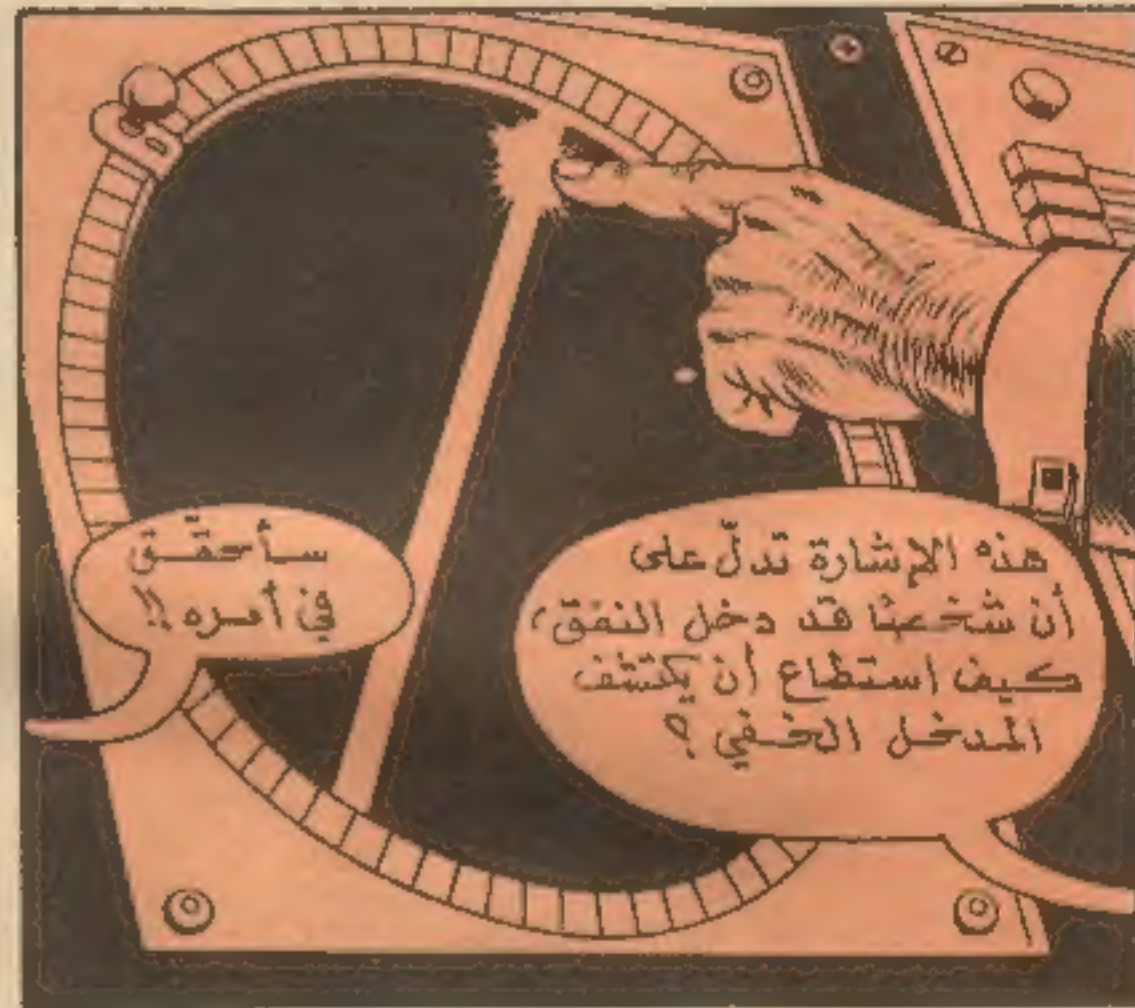 هذه الإشارة تدلّ على
أن شخصًا قد دخل النفق،
كيف استطاع أن يكتشف
المدخل الخفي ؟
سأحقّق
في أمره !!